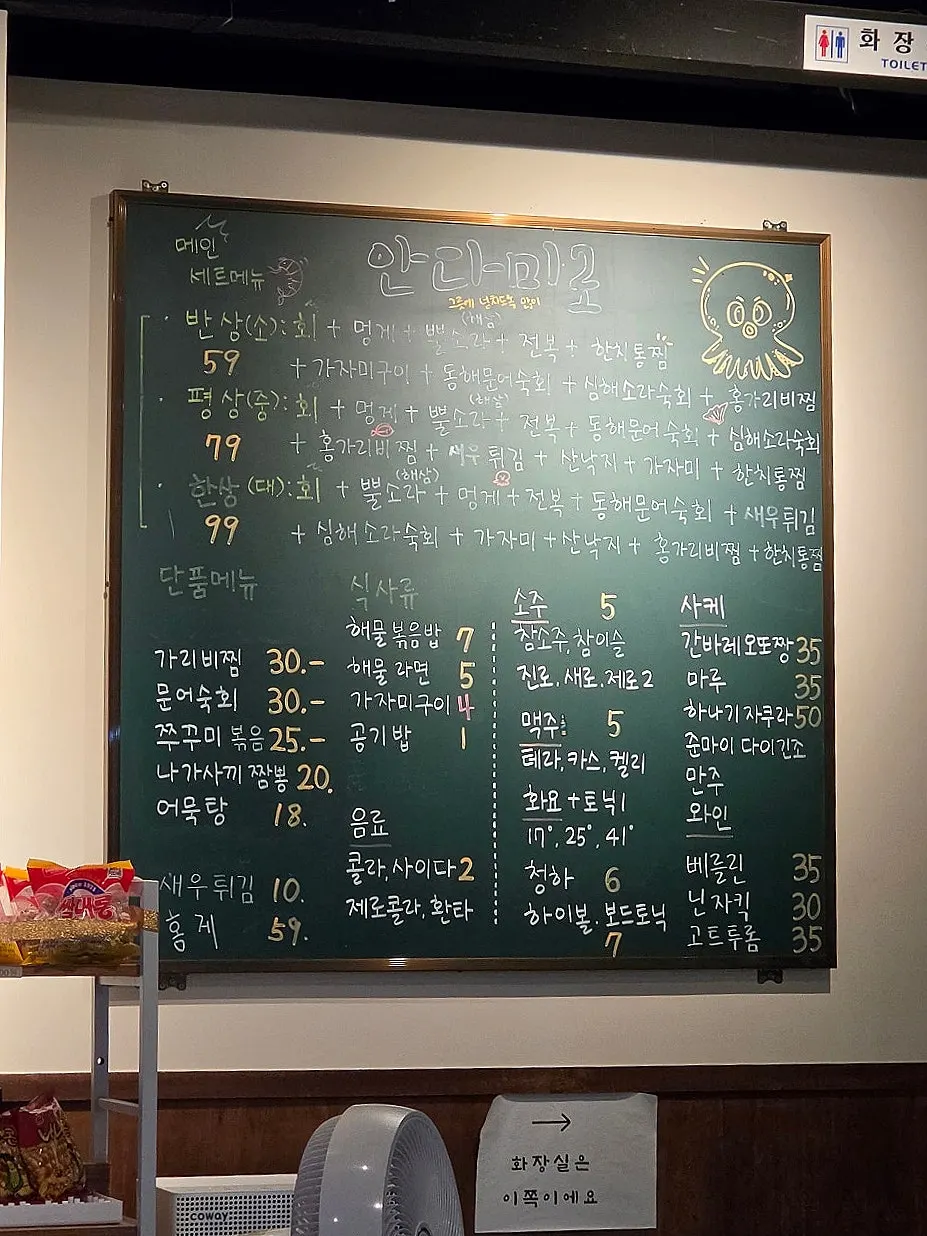 화장
TOILET
메인
세트메뉴
안다미로
그릇에 넘치도록 많이
반상(소): 회 + 멍게 + 뿔소라(해삼) + 전복 + 한치통찜
59 + 가자미구이 + 동해문어숙회 + 심해소라숙회 + 홍가리비찜
평상(중): 회 + 멍게 + 뿔소라(해삼) + 전복 + 동해문어숙회 + 심해소라숙회
79 + 홍가리비찜 + 새우튀김 + 산낙지 + 가자미 + 한치통찜
한상(대): 회 + 뿔소라(해삼) + 멍게 + 전복 + 동해문어숙회 + 새우튀김
99 + 심해소라숙회 + 가자미 + 산낙지 + 홍가리비찜 + 한치통찜
단품메뉴
가리비찜 30.-
문어숙회 30.-
쭈꾸미볶음 25.-
나가사끼짬뽕 20.
어묵탕 18.
새우튀김 10.
홍게 59.
식사류
해물볶음밥 7
해물라면 5
가자미구이 4
공기밥 1
음료
콜라, 사이다 2
제로콜라, 환타
소주 5
참소주, 참이슬
진로, 새로, 제로2
맥주: 5
테라, 카스, 켈리
화요 + 토닉1
17°, 25°, 41°
청하 6
하이볼, 보드토닉
7
사케
간바레오또짱 35
마루 35
하나기자쿠라 50
준마이 다이긴조
만주
와인
베플린 35
닌자킥 30
고트투룸 35
쌀대롱
COWAY
→
화장실은
이쪽이에요